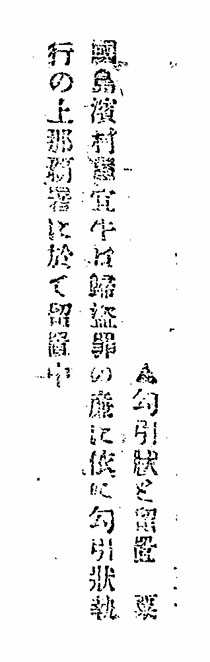 ▲勾引狀と留置　粟
國島濱村龜宜牛は歸盜罪の廉に依に勾引狀執
行の上那覇署に於て留置中